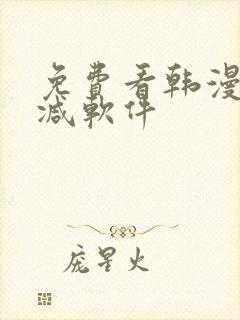 免費看韩漫
减軟件
庞星火